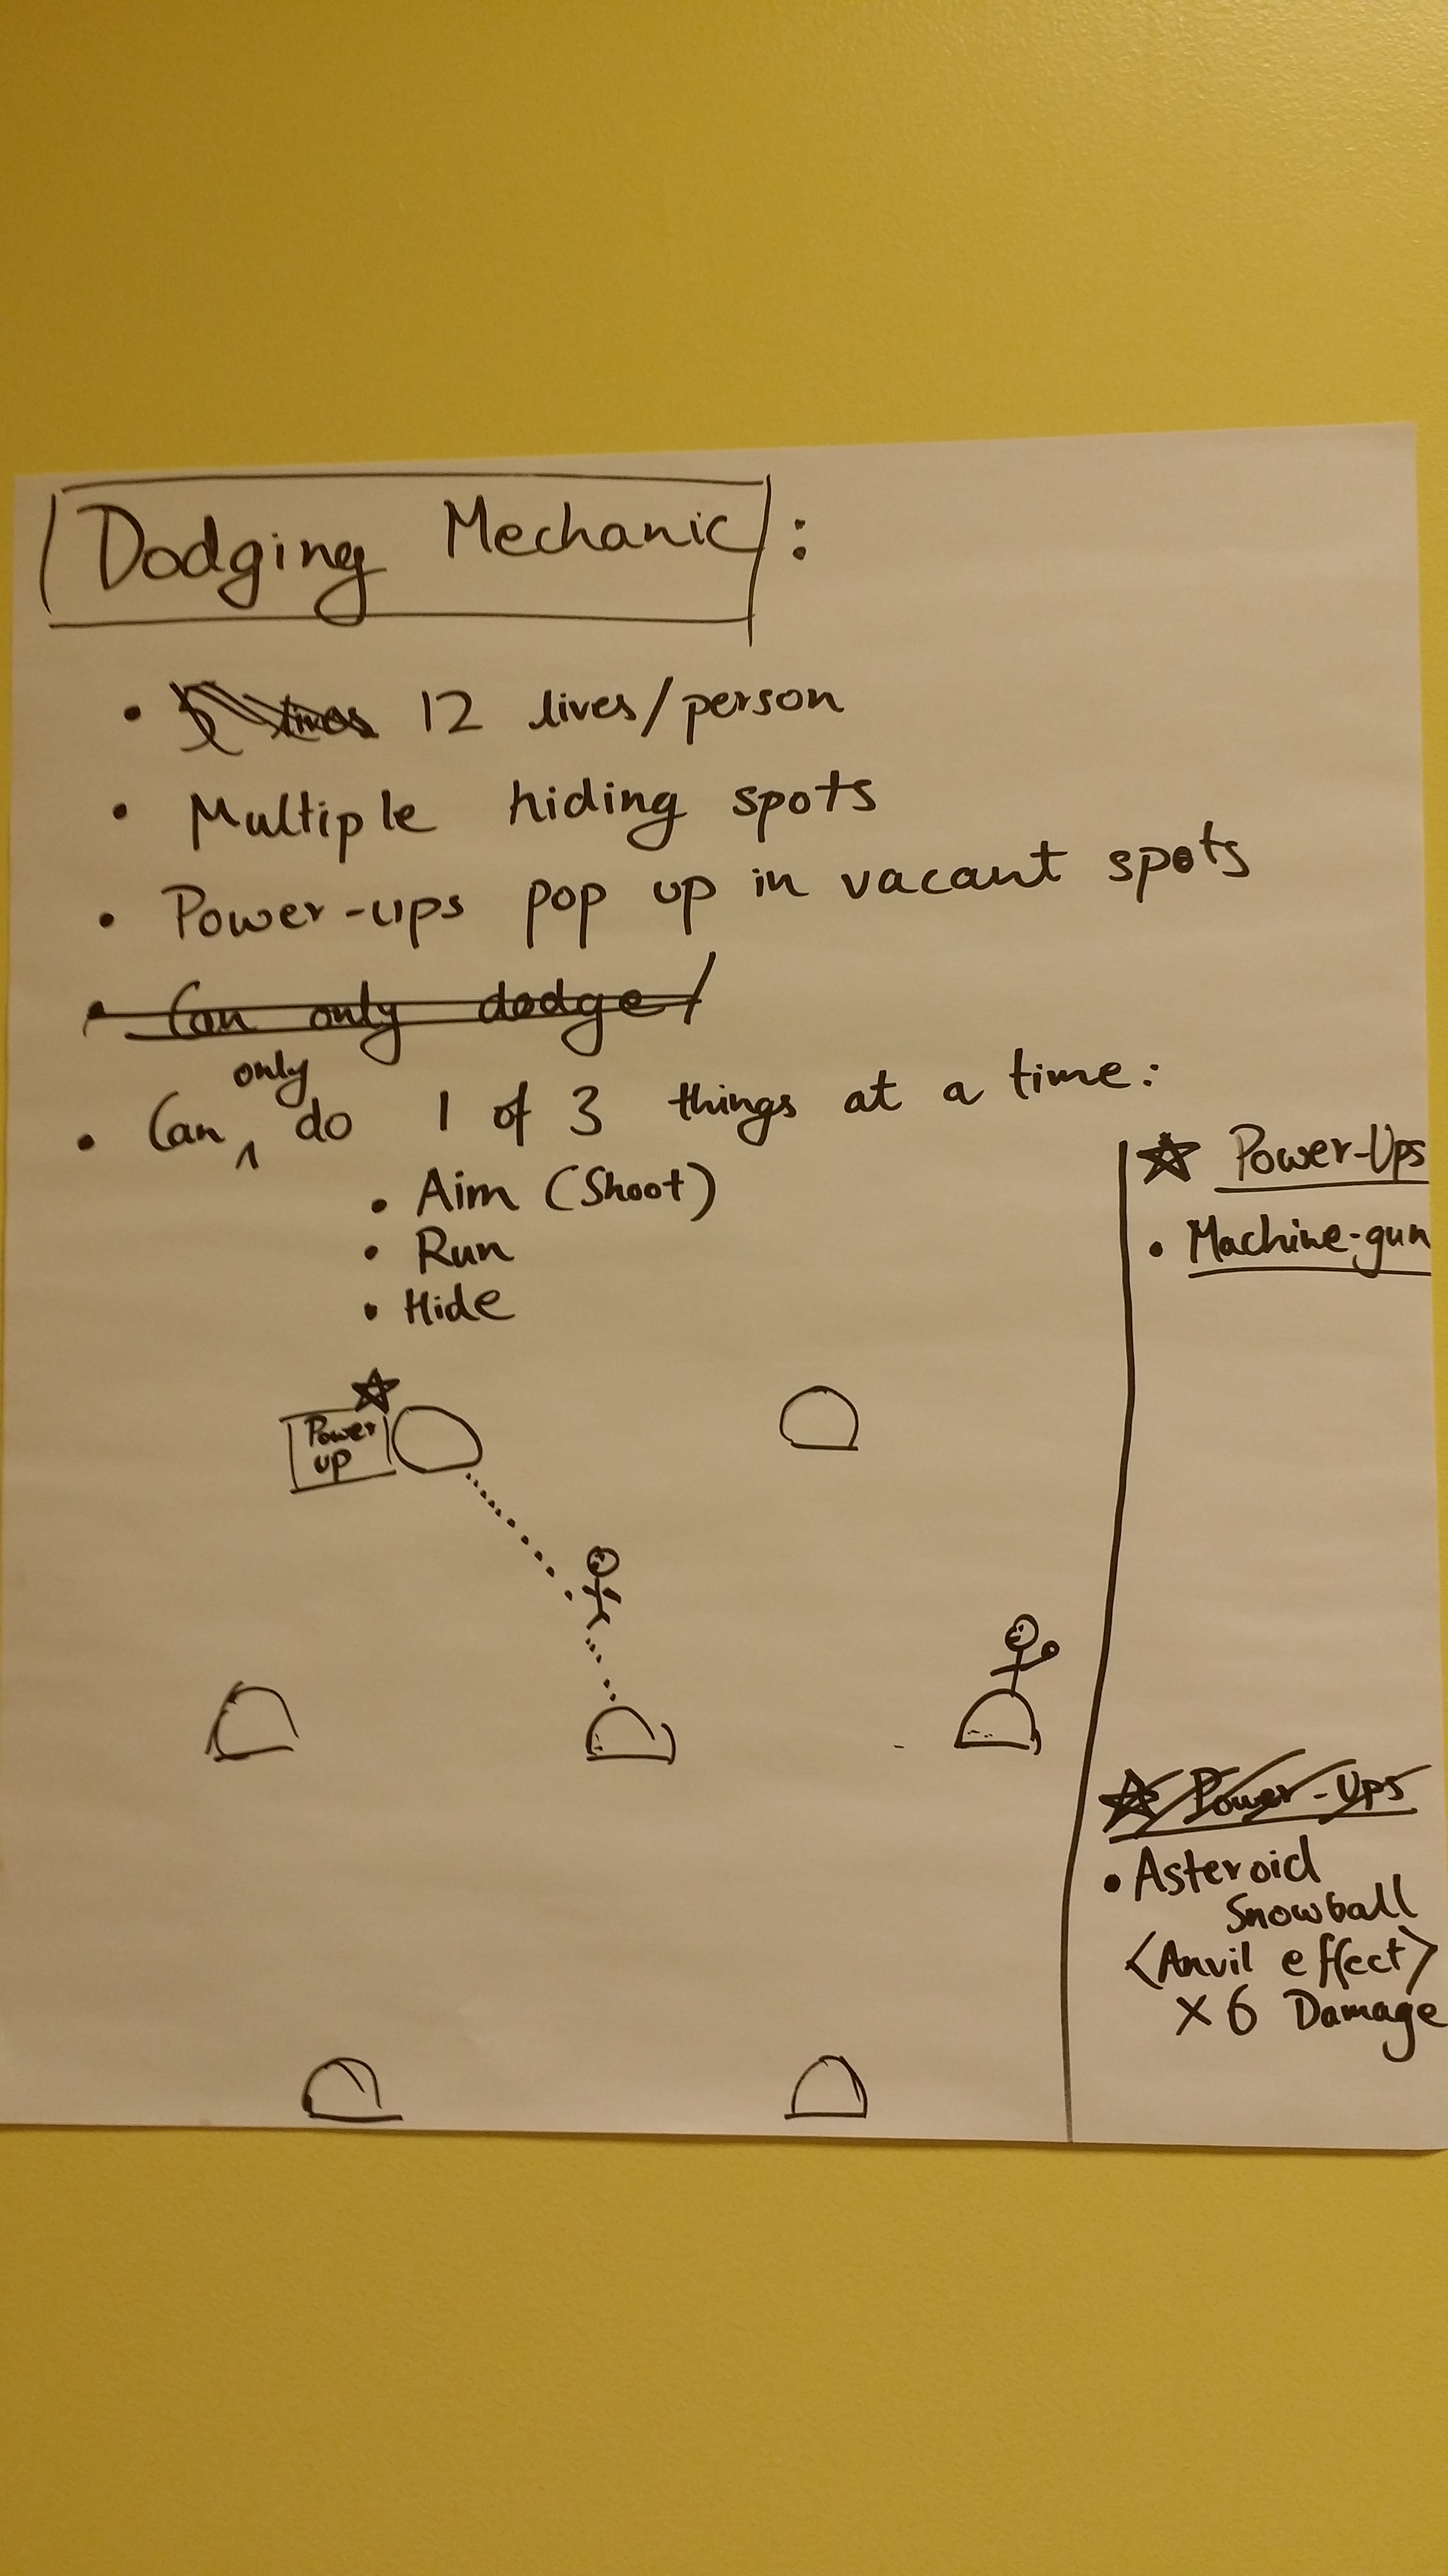 Dodging Mechanic:
• 12 lives/person
• Multiple hiding spots
• Power-ups pop up in vacant spots
• Can only dodge/
• Can only do 1 of 3 things at a time:
• Aim (Shoot)
• Run
• Hide
Power
up
Power-Ups
• Machine-gun
Power-Ups
• Asteroid
Snowball
<Anvil effect>
x 6 Damage